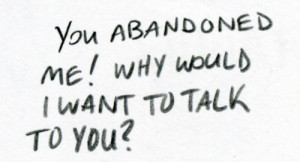 You ABANDONED
ME! WHY WOULD
I WANT TO TALK
TO YOU?